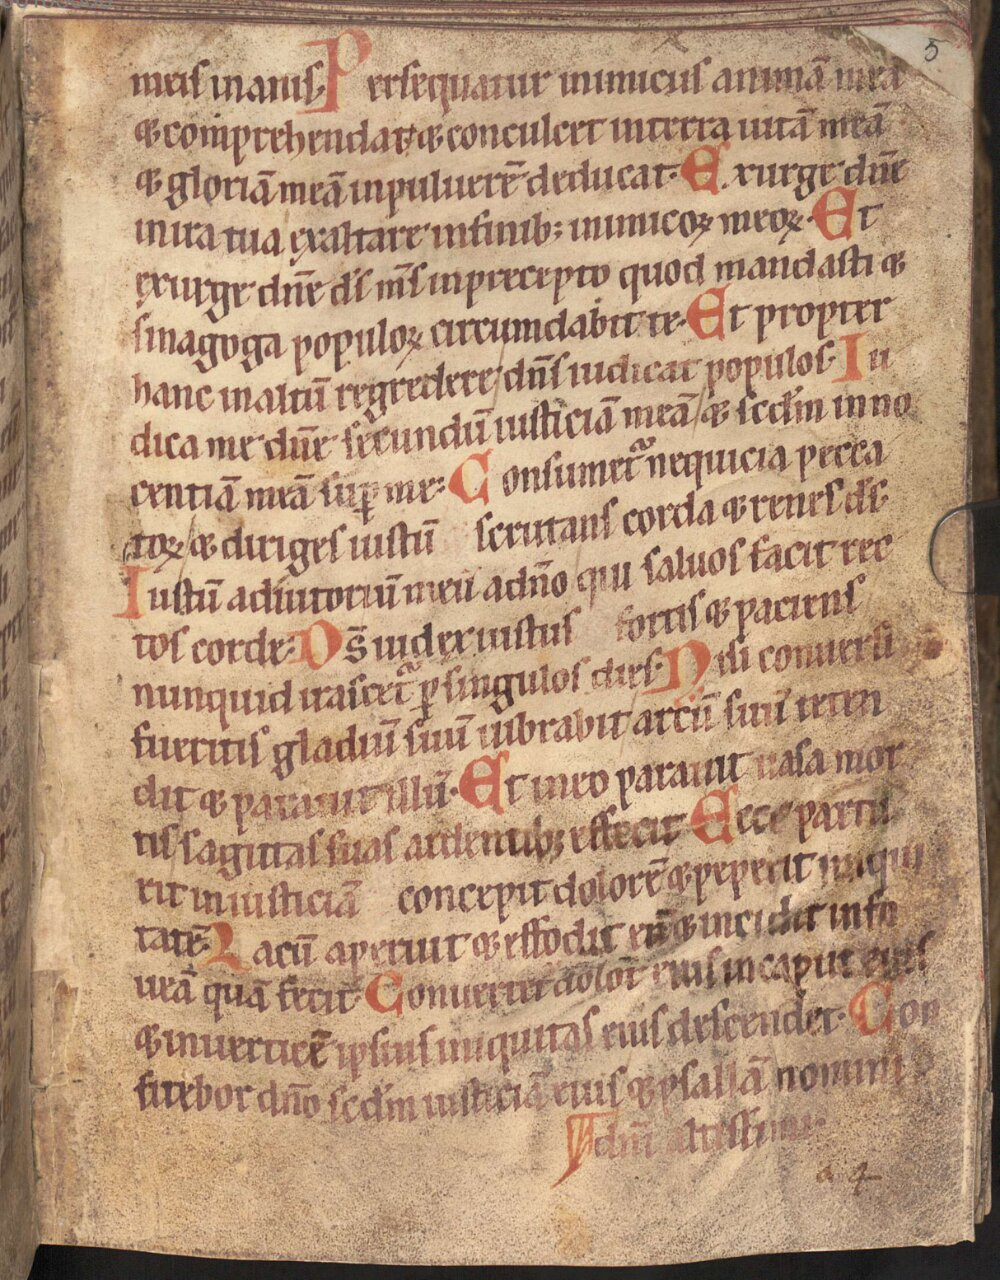 5
meis inanis. Persequatur inimicus animā meā
⁊ comprehendat ⁊ conculcet interra uitā meā
⁊ gloriā meā inpuluerē deducat. Exurge dn̄e
inira tua exaltare infinib; inimicoꝝ meoꝝ. Et
exurge dn̄e ds̄ ms̄ inprecepto quod mandasti ⁊
sinagoga populoꝝ circumdabit te. Et propter
hanc inaltū regredere dn̄s iudicat populos. Iu
dica me dn̄e secundū iusticiā meā ⁊ scd̄m inno
centiā meā sup̄ me. Consumet᷑ nequicia pecca
toꝝ ⁊ diriges iustū scrutans corda ⁊ renes ds̄.
Iustū adiutoriū meū adn̄o qui saluos facit rec
tos corde. Ds̄ iudex iustus fortis ⁊ paciens
nunquid irascet᷑ ꝑ singulos dies. Nisi conuersi
fueritis gladiū suū uibrabit arcū suū teten
dit ⁊ parauit illū. Et ineo parauit uasa mor
tis sagittas suas ardentib; effecit. Ecce partu
rit iniusticiā concepit dolorē ⁊ peperit iniqui
tatē. Lacū aperuit ⁊ effodit eū ⁊ incidit info
ueā quā fecit. Conuertet᷑ dolor eius incaput eius
⁊ inuerticē ipsius iniquitas eius descendet. Con
fitebor dn̄o scd̄m iusticiā eius ⁊ psallā nomini
dn̄i altissimi.